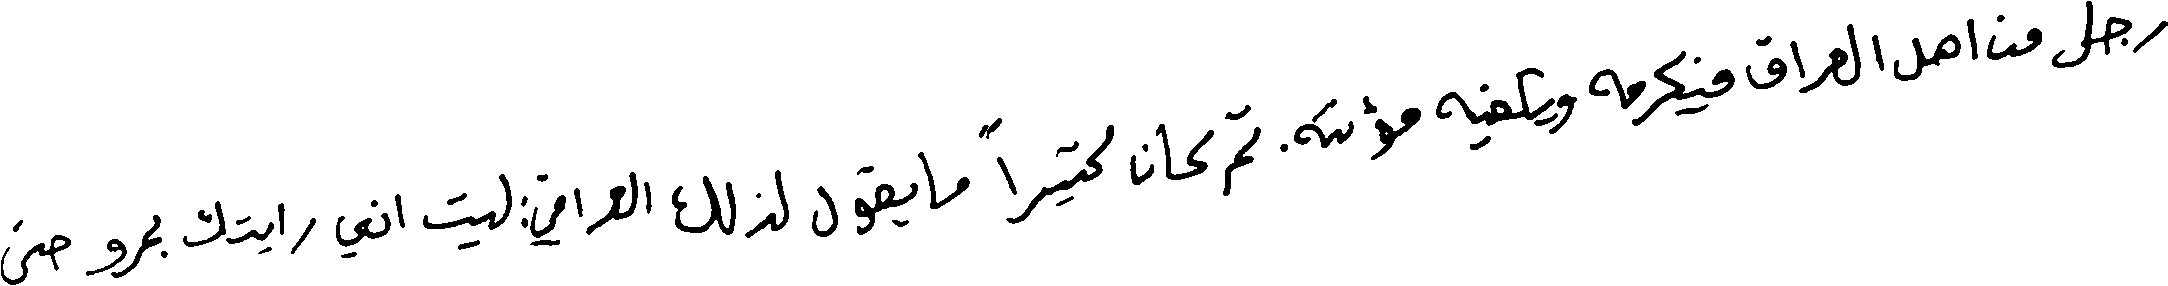 رجل من اهل العراق فيكرمه ويكفيه مؤنته. ثم كان كثيراً ما يقول لذلك العراقي: ليت اني رايتك بمرو حتى